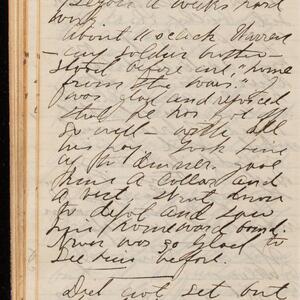 before a weeks hard
work
about 11 o'clock Warren
- my soldier brother -
stood before me, "home
from the wars." I
was glad and rejoiced
that he has got off
so well - with all
his pay. Took him
up to dinner, gave
him a collar and
a vest, went down
to depot and saw
him homeward bound.
Never was so glad to
see him before.
Did not set out